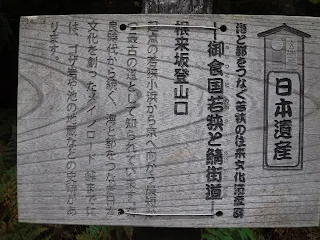 日本遺産
海と都をつなぐ若狭の往来文化遺産群
御食国若狭と鯖街道
根来坂登山口
の若狭小浜から京へ向かう最短
最古の道として知られています。
時代から続く、海と都をつ
文化を創ったメインロード
は、ゴザ岩や池の地蔵などの史跡があ
ります。